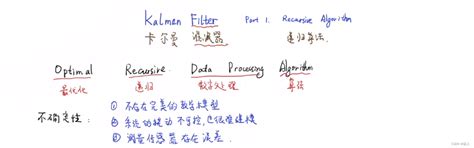 Kalman Filter Part 1. Recursive Algorithm
卡尔曼 滤波器 递归算法.
Optimal Recursive Data Processing Algorithm
最优化 递归 数字处理 算法
不确定性: ① 不存在完美的数学模型
② 系统的扰动不可控,也很难建模
③ 测量传感器存在误差.